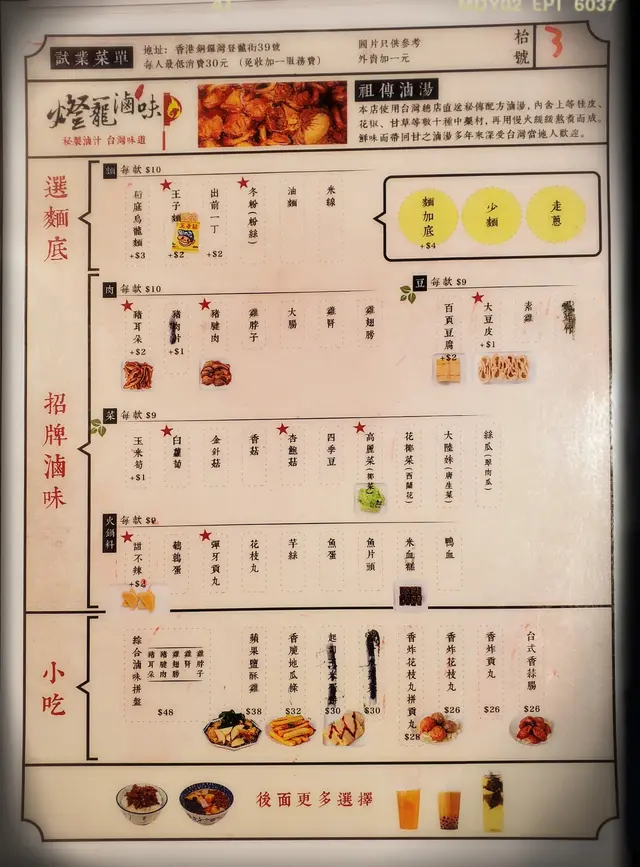 MDY02 EPT 6037
試業菜單
地址：香港銅鑼灣登龍街39號
每人最低消費30元 (免收加一服務費)
圖片只供參考
外賣加一元
枱號
3
燈籠滷味
秘製滷汁 台灣味道
祖傳滷湯
本店使用台灣總店直送秘傳配方滷湯，內含上等桂皮、
花椒、甘草等數十種中藥材，再用慢火緩緩熬煮而成。
鮮味而帶回甘之滷湯多年來深受台灣當地人歡迎。
選麵底
麵 每款 $10
稻庭烏龍麵 +$3
王子麵 +$2
出前一丁 +$2
冬粉(粉絲)
油麵
米線
麵加底 +$4
少麵
走蔥
招牌滷味
肉 每款 $10
豬耳朵 +$2
+$1
豬腱肉
雞脖子
大腸
雞腎
雞翅膀
豆 每款 $9
百頁豆腐 +$2
大豆皮 +$1
素雞
菜 每款 $9
玉米筍 +$1
白蘿蔔
金針菇
香菇
杏鮑菇
四季豆
高麗菜(椰菜)
花椰菜(西蘭花)
大陸妹(唐生菜)
絲瓜(翠肉瓜)
火鍋料 每款 $9
甜不辣
鵪鶉蛋
彈牙貢丸
花枝丸
芋絲
魚蛋
魚片頭
米血糕
鴨血
小吃
綜合滷味拼盤
豬耳朵
豬腱肉
雞翅膀
雞腎
雞脖子
$48
蘋果鹽酥雞 $38
香脆地瓜條 $32
$30
$30
香炸花枝丸拼貢丸 $28
香炸花枝丸 $26
香炸貢丸 $26
台式香蒜腸 $26
後面更多選擇